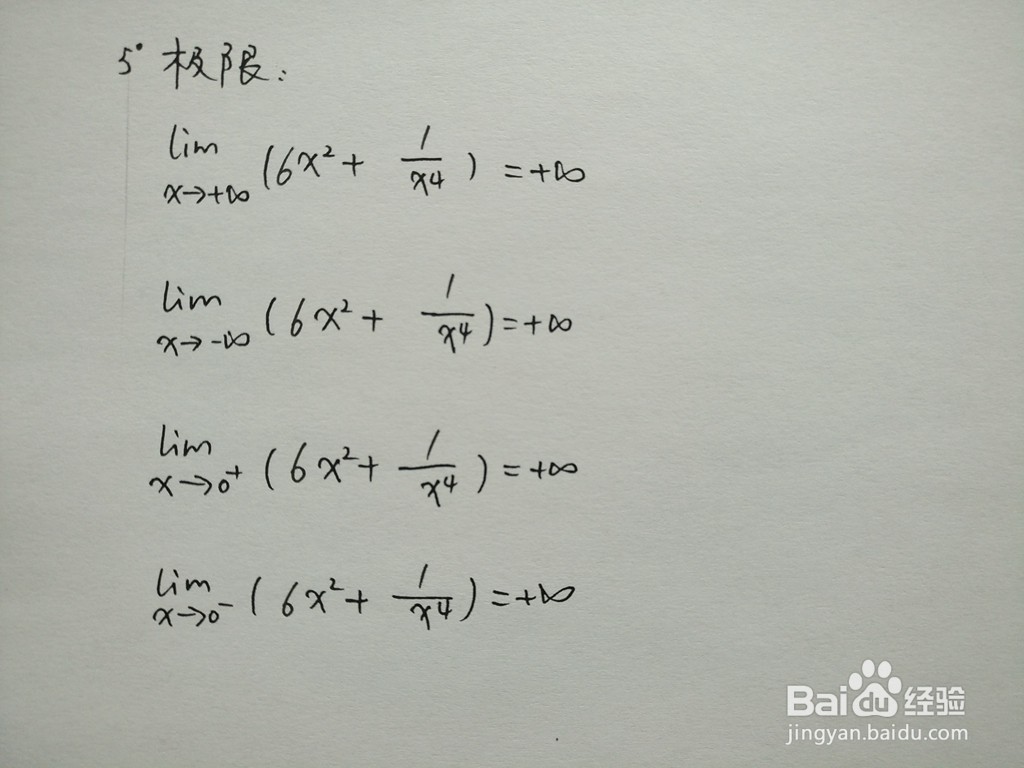 5° 极限:
lim x→+∞ (6x² + 1/x⁴) = +∞
lim x→-∞ (6x² + 1/x⁴) = +∞
lim x→0⁺ (6x² + 1/x⁴) = +∞
lim x→0⁻ (6x² + 1/x⁴) = +∞
Baidu经验
jingyan.baidu.com